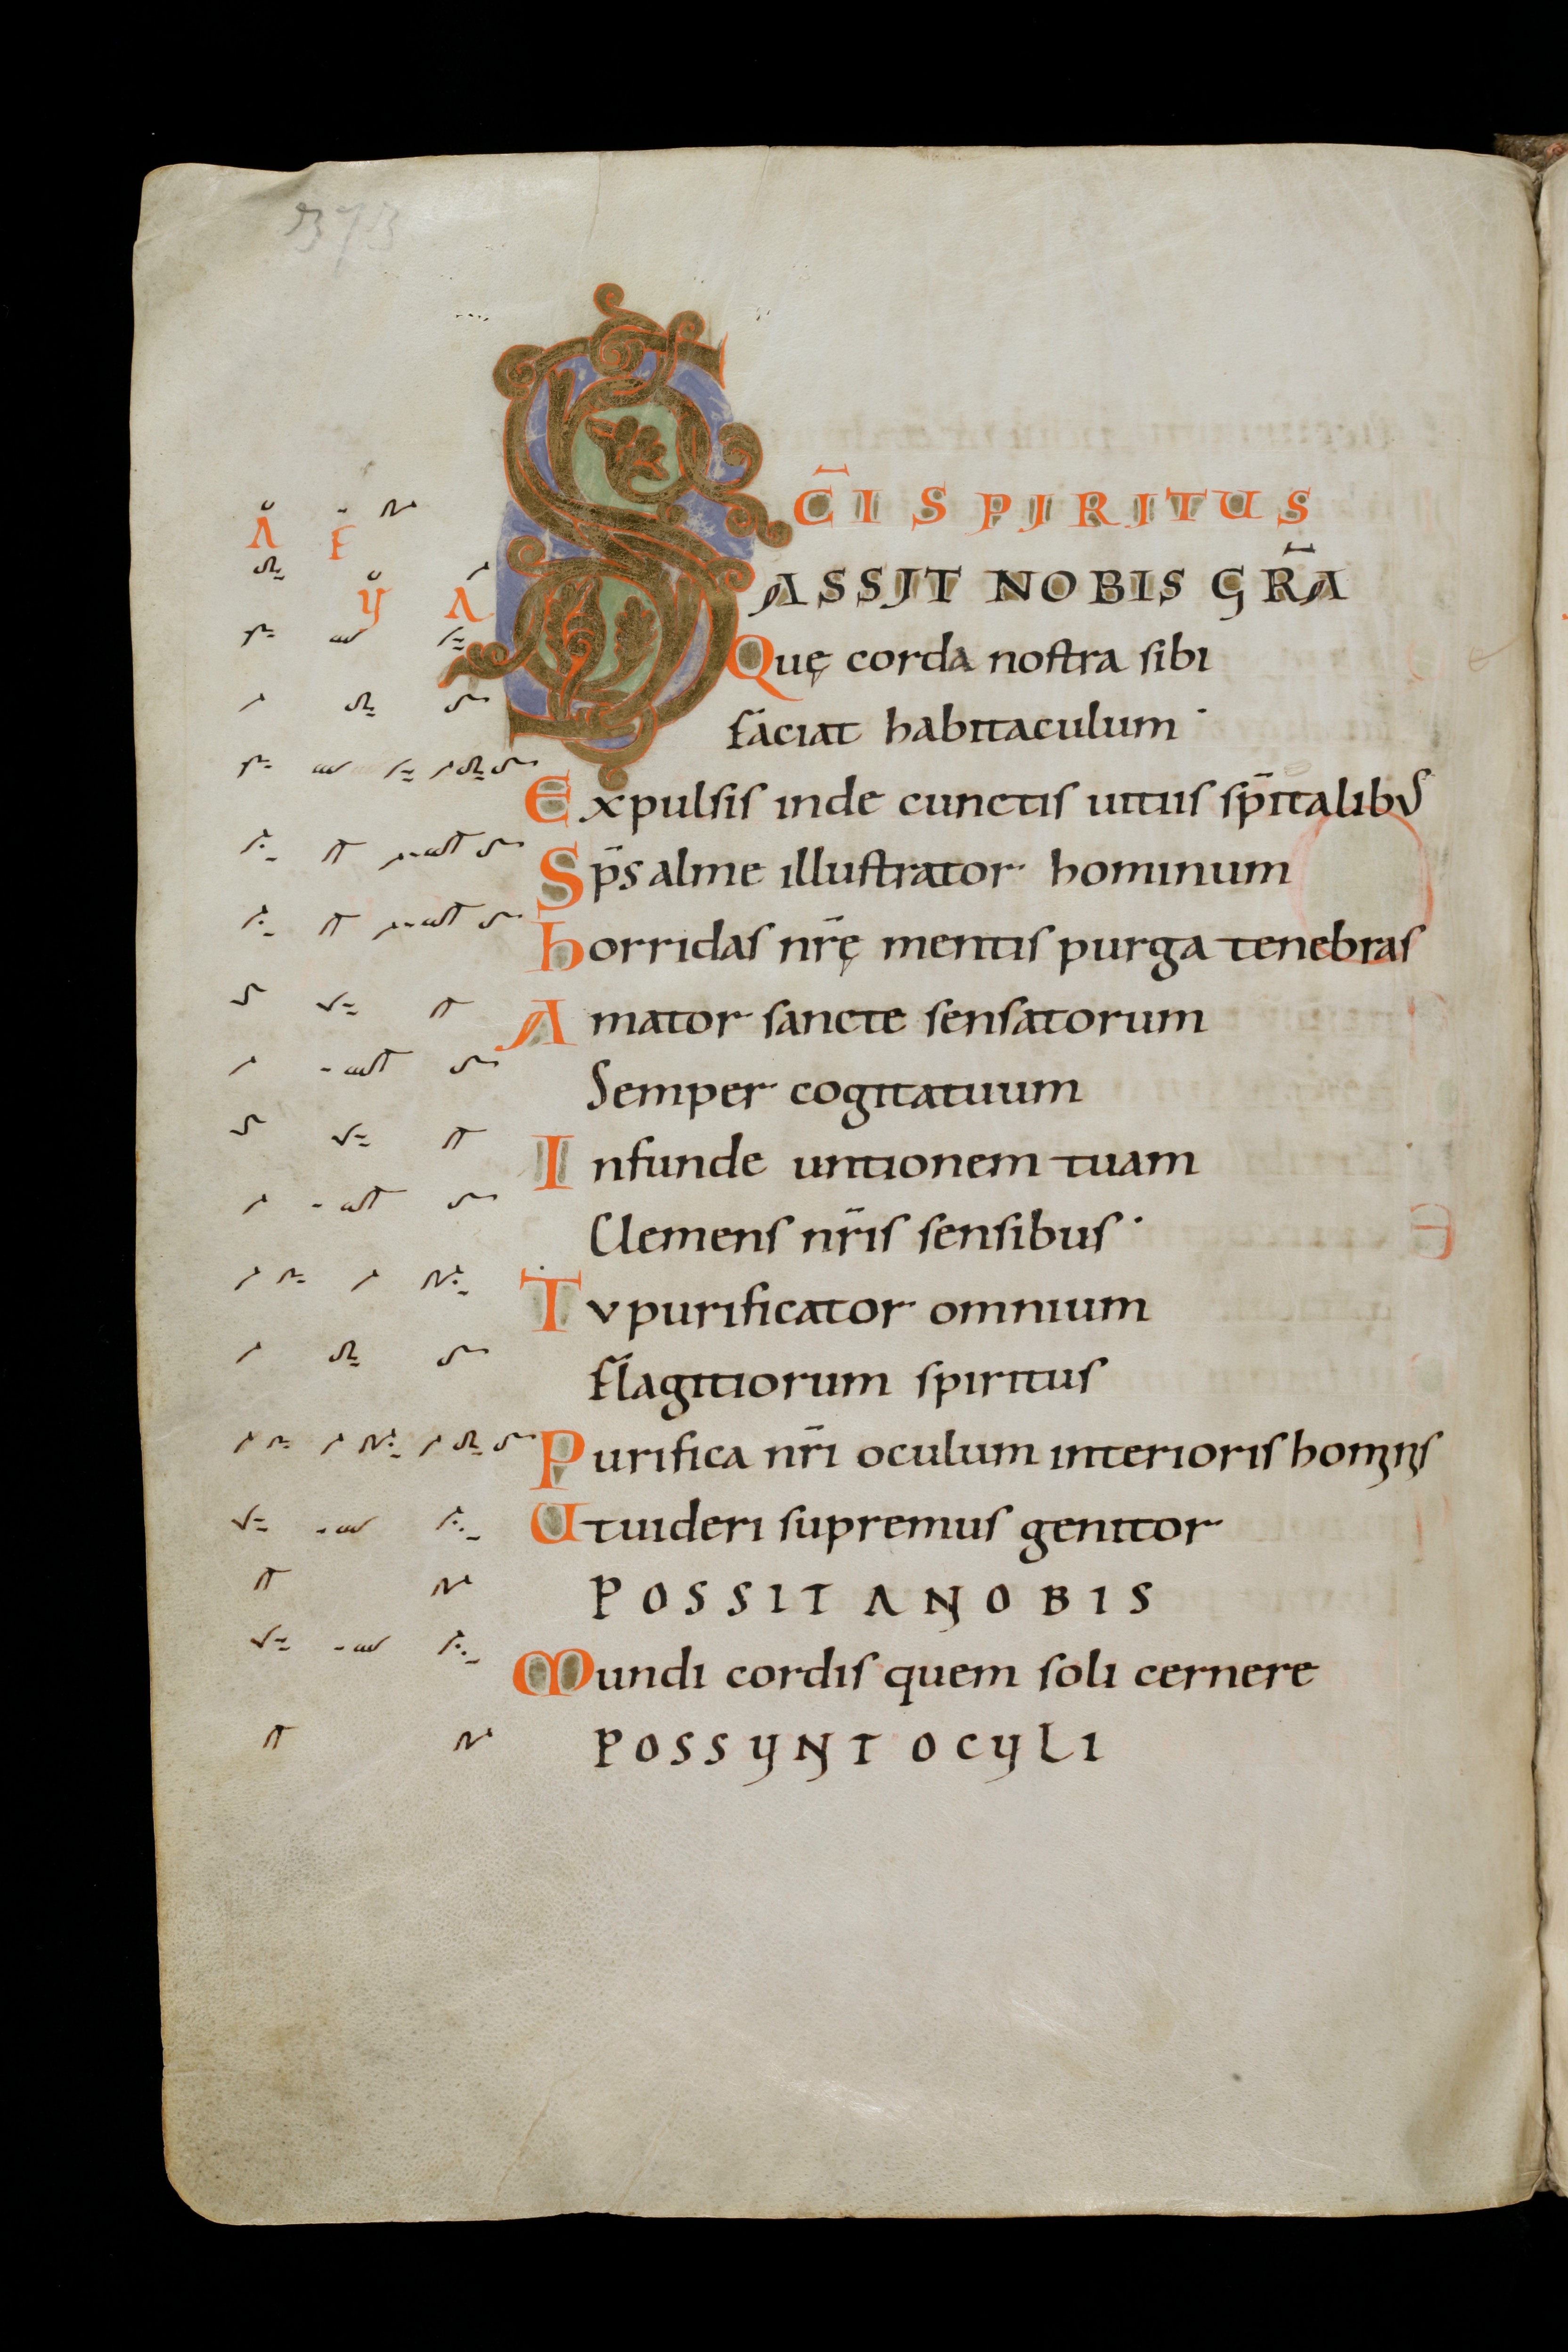 373
SC̄I SPIRITUS
A E U A
ASSIT NOBIS GR̄A
Quę corda nostra sibi
faciat habitaculum ·
Expulsis inde cunctis uitiis sp̄italibus
Sp̄s alme illustrator hominum
horridas nr̄ę mentis purga tenebras
Amator sancte sensatorum
Semper cogitatuum
Infunde untionem tuam
Clemens nr̄is sensibus ·
Tu purificator omnium
Flagitiorum spiritus
Purifica nr̄i oculum interioris hominis
Ut uideri supremus genitor
POSSIT A NOBIS
Mundi cordis quem soli cernere
POSSUNT OCULI